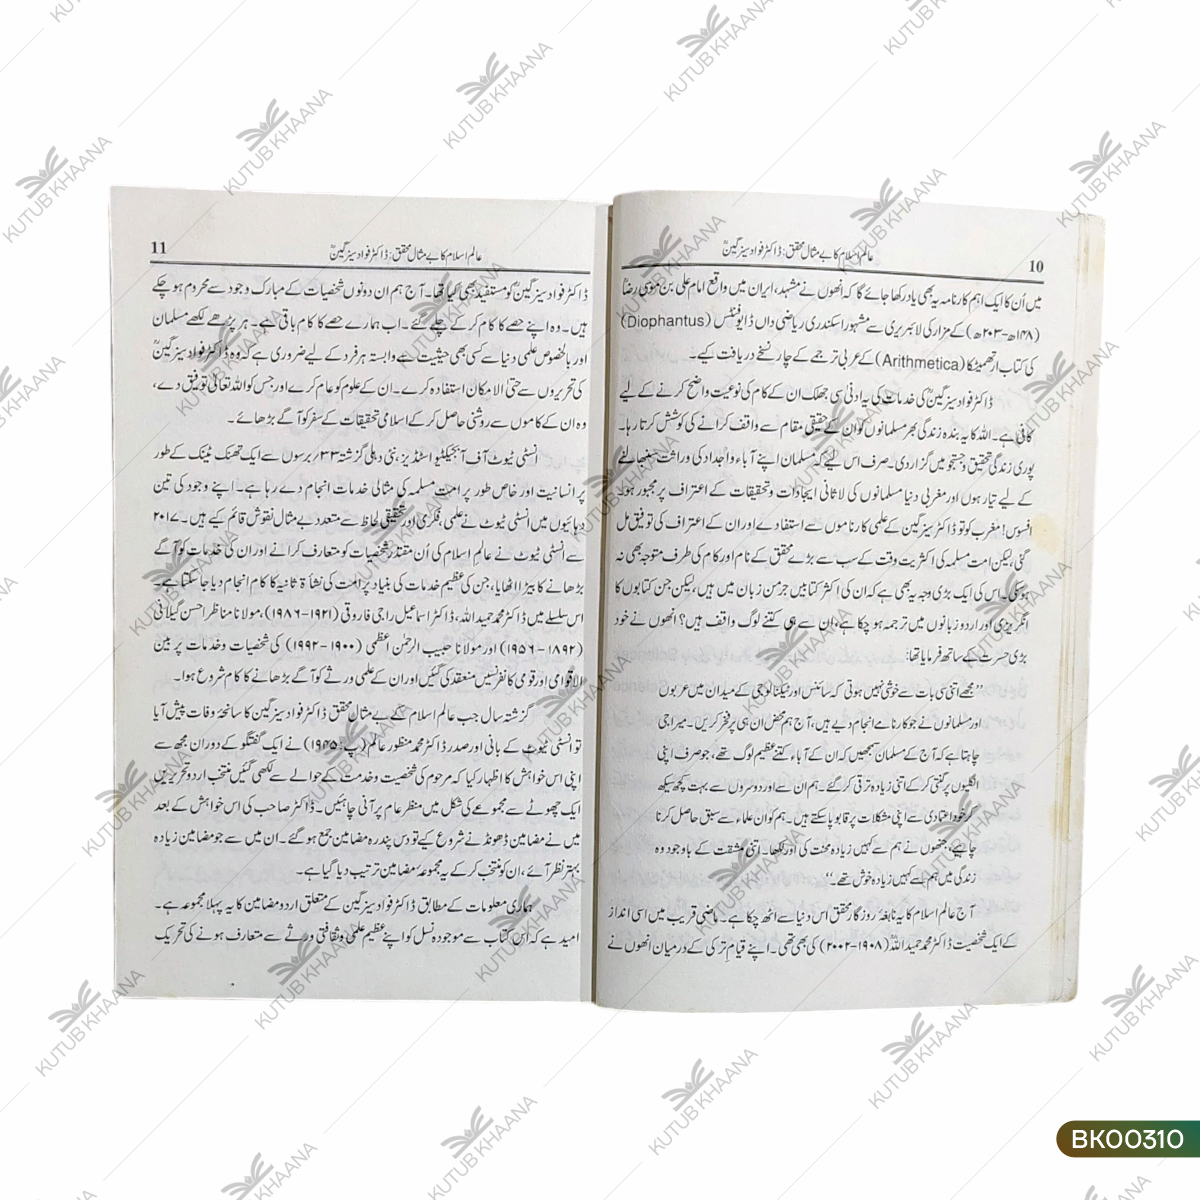 10
عالم اسلام کا بے مثال محقق: ڈاکٹر فواد سیزگینؒ
میں اُن کا ایک اہم کارنامہ یہ بھی یاد رکھا جائے گا کہ انھوں نے مشہد، ایران میں واقع امام علی بن موسیٰ رضاؑ
(۱۴۸ھ-۲۰۳ھ) کے مزار کی لائبریری سے مشہور اسکندری ریاضی داں ڈایوفنٹس (Diophantus)
کی کتاب ارتھمیٹکا (Arithmetica) کے عربی ترجمے کے چار نسخے دریافت کیے۔
ڈاکٹر فواد سیزگینؒ کی خدمات کی یہ ادنیٰ سی جھلک ان کے کام کی نوعیت واضح کرنے کے لیے
کافی ہے۔ اللہ کا یہ بندہ زندگی بھر مسلمانوں کو ان کے حقیقی مقام سے واقف کرانے کی کوشش کرتا رہا۔
پوری زندگی تحقیق و جستجو میں گزار دی۔ صرف اس لیے کہ مسلمان اپنے آباء و اجداد کی وراثت سنبھالنے
کے لیے تیار ہوں اور مغربی دنیا مسلمانوں کی لاثانی ایجادات و تحقیقات کے اعتراف پر مجبور ہو۔
افسوس! مغرب کو تو ڈاکٹر سیزگین کے علمی کارناموں سے استفادے اور ان کے اعتراف کی توفیق مل
گئی، لیکن امت مسلمہ کی اکثریت وقت کے سب سے بڑے محقق کے نام اور کام کی طرف متوجہ بھی نہ
ہوسکی۔ اس کی ایک بڑی وجہ یہ بھی ہے کہ ان کی اکثر کتابیں جرمن زبان میں ہیں، لیکن جن کتابوں کا
انگریزی اور اردو زبانوں میں ترجمہ ہو چکا ہے، ان سے ہی کتنے لوگ واقف ہیں؟ انھوں نے خود
بڑی حسرت کے ساتھ فرمایا تھا:
”مجھے اتنی سی بات سے خوشی نہیں ہوتی کہ سائنس اور ٹیکنالوجی کے میدان میں عربوں
اور مسلمانوں نے جو کارنامے انجام دیے ہیں، آج ہم محض ان ہی پر فخر کریں۔ میرا جی
چاہتا ہے کہ آج کے مسلمان سمجھیں کہ ان کے آباء کتنے عظیم لوگ تھے، جو صرف اپنی
انگلیوں پر گنتی کر کے اتنی زیادہ ترقی کر گئے۔ ہم ان سے اور دوسروں سے بہت کچھ سیکھ
کر خود اعتمادی سے اپنی مشکلات پر قابو پا سکتے ہیں۔ ہم کو ان علماء سے سبق حاصل کرنا
چاہیے، جنھوں نے ہم سے کہیں زیادہ محنت کی اور لکھا۔ اتنی مشقت کے باوجود وہ
زندگی میں ہم سے کہیں زیادہ خوش تھے۔“
آج عالم اسلام کا یہ نابغۂ روزگار محقق اس دنیا سے اٹھ چکا ہے۔ ماضی قریب میں اسی انداز
کے ایک شخصیت ڈاکٹر محمد حمید اللہؒ (۱۹۰۸-۲۰۰۲) کی بھی تھی۔ اپنے قیام ترکی کے درمیان انھوں نے
11
عالم اسلام کا بے مثال محقق: ڈاکٹر فواد سیزگینؒ
ڈاکٹر فواد سیزگینؒ کو مستفید بھی کیا تھا۔ آج ہم ان دونوں شخصیات کے مبارک وجود سے محروم ہو چکے
ہیں۔ وہ اپنے حصے کا کام کر کے چلے گئے۔ اب ہمارے حصے کا کام باقی ہے۔ ہر پڑھے لکھے مسلمان
اور بالخصوص علمی دنیا سے کسی بھی حیثیت سے وابستہ ہر فرد کے لیے ضروری ہے کہ وہ ڈاکٹر فواد سیزگینؒ
کی تحریروں سے حتی الامکان استفادہ کرے۔ ان کے علوم کو عام کرے اور جس کو اللہ تعالیٰ توفیق دے،
وہ ان کے کاموں سے روشنی حاصل کر کے اسلامی تحقیقات کے سفر کو آگے بڑھائے۔
انسٹی ٹیوٹ آف آبجیکٹیو اسٹڈیز، نئی دہلی گزشتہ ۳۳؍ برسوں سے ایک تھنک ٹینک کے طور
پر انسانیت اور خاص طور پر امت مسلمہ کی مثالی خدمات انجام دے رہا ہے۔ اپنے وجود کی تین
دہائیوں میں انسٹی ٹیوٹ نے علمی، فکری اور تحقیقی لحاظ سے متعدد بے مثال نقوش قائم کیے ہیں۔ ۲۰۱۷
سے انسٹی ٹیوٹ نے عالم اسلام کی اُن مقتدر شخصیات کو متعارف کرانے اور ان کی خدمات کو آگے
بڑھانے کا بیڑا اٹھایا، جن کی عظیم خدمات کی بنیاد پر امت کی نشأۃ ثانیہ کا کام انجام دیا جا سکتا ہے۔
اس سلسلے میں ڈاکٹر محمد حمید اللہ، ڈاکٹر اسماعیل راجی فاروقی (۱۹۲۱-۱۹۸۶)، مولانا مناظر احسن گیلانی
(۱۸۹۲-۱۹۵۶) اور مولانا حبیب الرحمٰن اعظمی (۱۹۰۰-۱۹۹۲) کی شخصیات و خدمات پر بین
الاقوامی اور قومی کانفرنسیں منعقد کی گئیں اور ان کے علمی ورثے کو آگے بڑھانے کا کام شروع ہوا۔
گزشتہ سال جب عالم اسلام کے بے مثال محقق ڈاکٹر فواد سیزگین کا سانحۂ وفات پیش آیا
تو انسٹی ٹیوٹ کے بانی اور صدر ڈاکٹر محمد منظور عالم (پ: ۱۹۴۵) نے ایک گفتگو کے دوران مجھ سے
اپنی اس خواہش کا اظہار کیا کہ مرحوم کی شخصیت و خدمت کے حوالے سے لکھی گئیں منتخب اردو تحریریں
ایک چھوٹے سے مجموعے کی شکل میں منظر عام پر آنی چاہئیں۔ ڈاکٹر صاحب کی اس خواہش کے بعد
میں نے مضامین ڈھونڈنے شروع کیے تو دس پندرہ مضامین جمع ہو گئے۔ ان میں سے جو مضامین زیادہ
بہتر نظر آئے، ان کو منتخب کر کے یہ مجموعۂ مضامین ترتیب دیا گیا ہے۔
ہماری معلومات کے مطابق ڈاکٹر فواد سیزگین کے متعلق اردو مضامین کا یہ پہلا مجموعہ ہے۔
امید ہے کہ اس کتاب سے موجودہ نسل کو اپنے عظیم علمی و ثقافتی ورثے سے متعارف ہونے کی تحریک
KUTUB KHAANA
BK00310